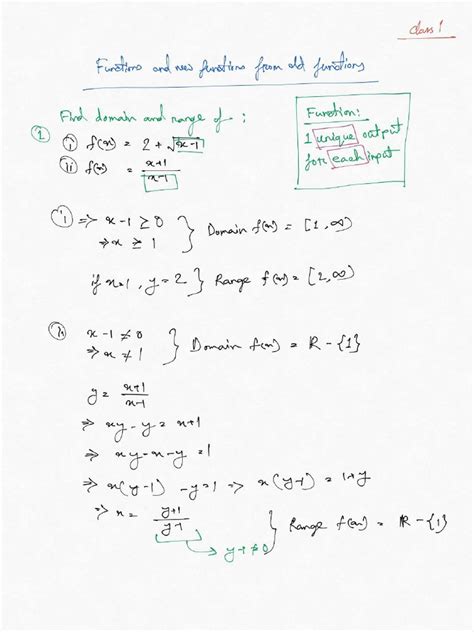 Class 1
Functions and new functions from old functions
Find domain and range of :
① ⓘ f(x) = 2 + √x-1
ⓘⓘ f(x) = x+1 / x-1
Function:
1 unique output
for each input
ⓘ ⇒ x-1 ≥ 0
⇒ x ≥ 1 } Domain f(x) = [1, ∞)
if x=1, y=2 } Range f(x) = [2, ∞)
ⓘⓘ x-1 ≠ 0
⇒ x ≠ 1 } Domain f(x) = R - {1}
y = x+1 / x-1
⇒ xy - y = x+1
⇒ xy - x - y = 1
⇒ x(y-1) - y = 1 ⇒ x(y-1) = 1+y
⇒ x = y+1 / y-1 } Range f(x) = R - {1}
→ y-1 ≠ 0